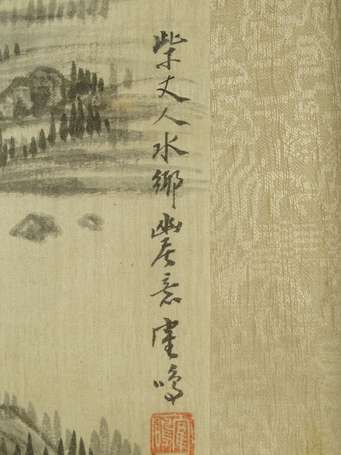 柴丈人水鄉幽居意